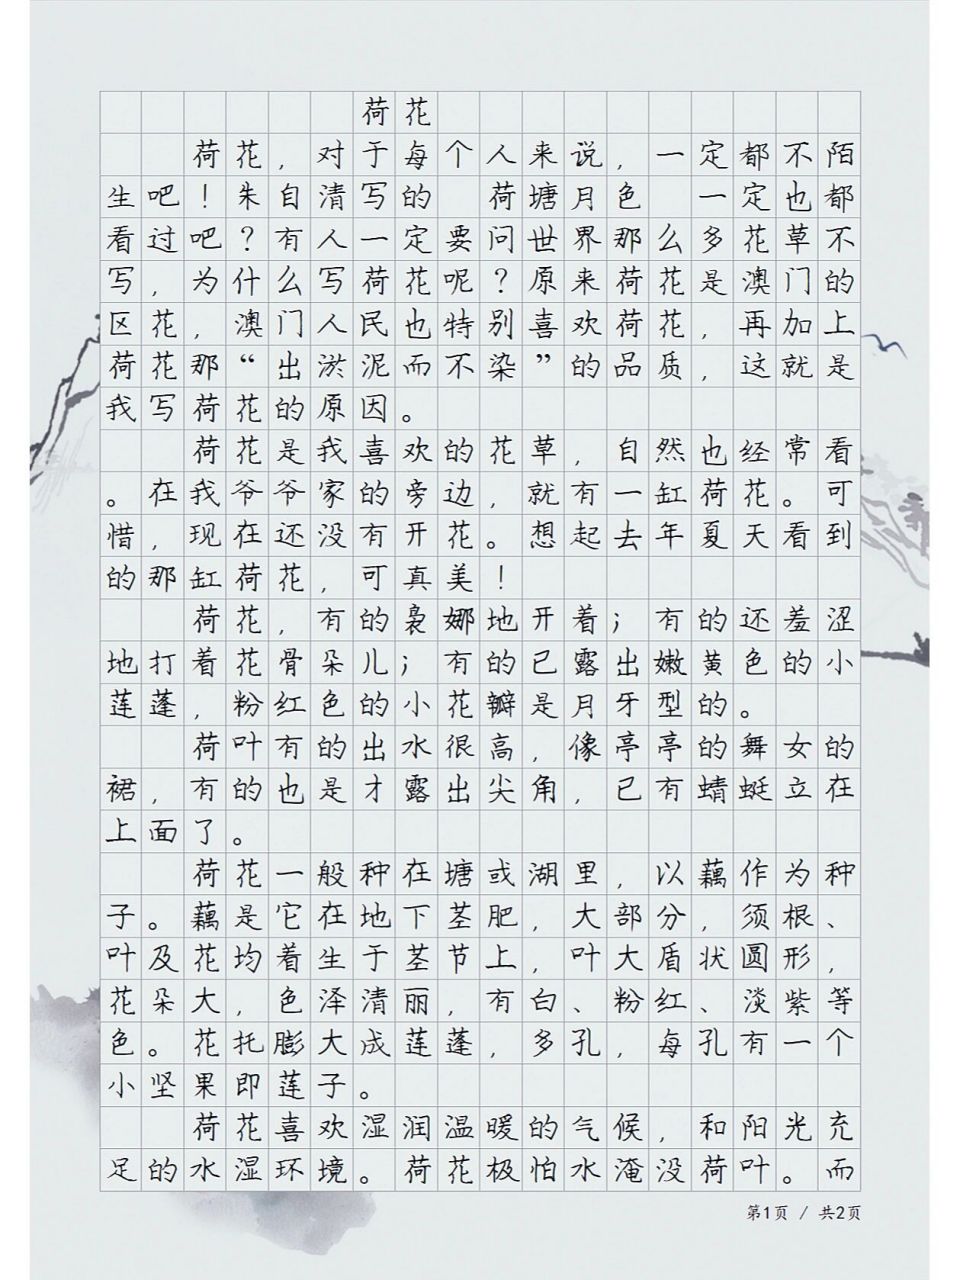 荷花
荷花，对于每个人来说，一定都不陌
生吧！朱自清写的 荷塘月色 一定也都
看过吧？有人一定要问世界那么多花草不
写，为什么写荷花呢？原来荷花是澳门的
区花，澳门人民也特别喜欢荷花，再加上
荷花那“出淤泥而不染”的品质，这就是
我写荷花的原因。
荷花是我喜欢的花草，自然也经常看
。在我爷爷家的旁边，就有一缸荷花。可
惜，现在还没有开花。想起去年夏天看到
的那缸荷花，可真美！
荷花，有的袅娜地开着；有的还羞涩
地打着花骨朵儿；有的已露出嫩黄色的小
莲蓬，粉红色的小花瓣是月牙型的。
荷叶有的出水很高，像亭亭的舞女的
裙，有的也是才露出尖角，已有蜻蜓立在
上面了。
荷花一般种在塘或湖里，以藕作为种
子。藕是它在地下茎肥，大部分，须根、
叶及花均着生于茎节上，叶大盾状圆形，
花朵大，色泽清丽，有白、粉红、淡紫等
色。花托膨大成莲蓬，多孔，每孔有一个
小坚果即莲子。
荷花喜欢湿润温暖的气候，和阳光充
足的水湿环境。荷花极怕水淹没荷叶。而
第1页 / 共2页